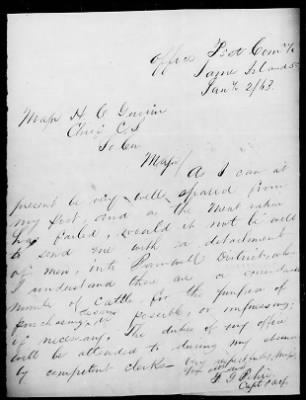 Office Post Com'y
James Island SC
Jany 2/63.
Major H. C. Guerin
Chief C. S.
So Ca
Major
As I can at
present be very well spared from
my post, and as the Meat ration
has failed, would it not be well
to send me with a detachment
of men, into Barnwell District, where
I understand there are a considerable
number of Cattle, for the purpose of
purchasing, if possible, or impressing,
if necessary. The duties of my office
will be attended to during my absence
by competent clerks.
Very respectfully, Major,
Capt &